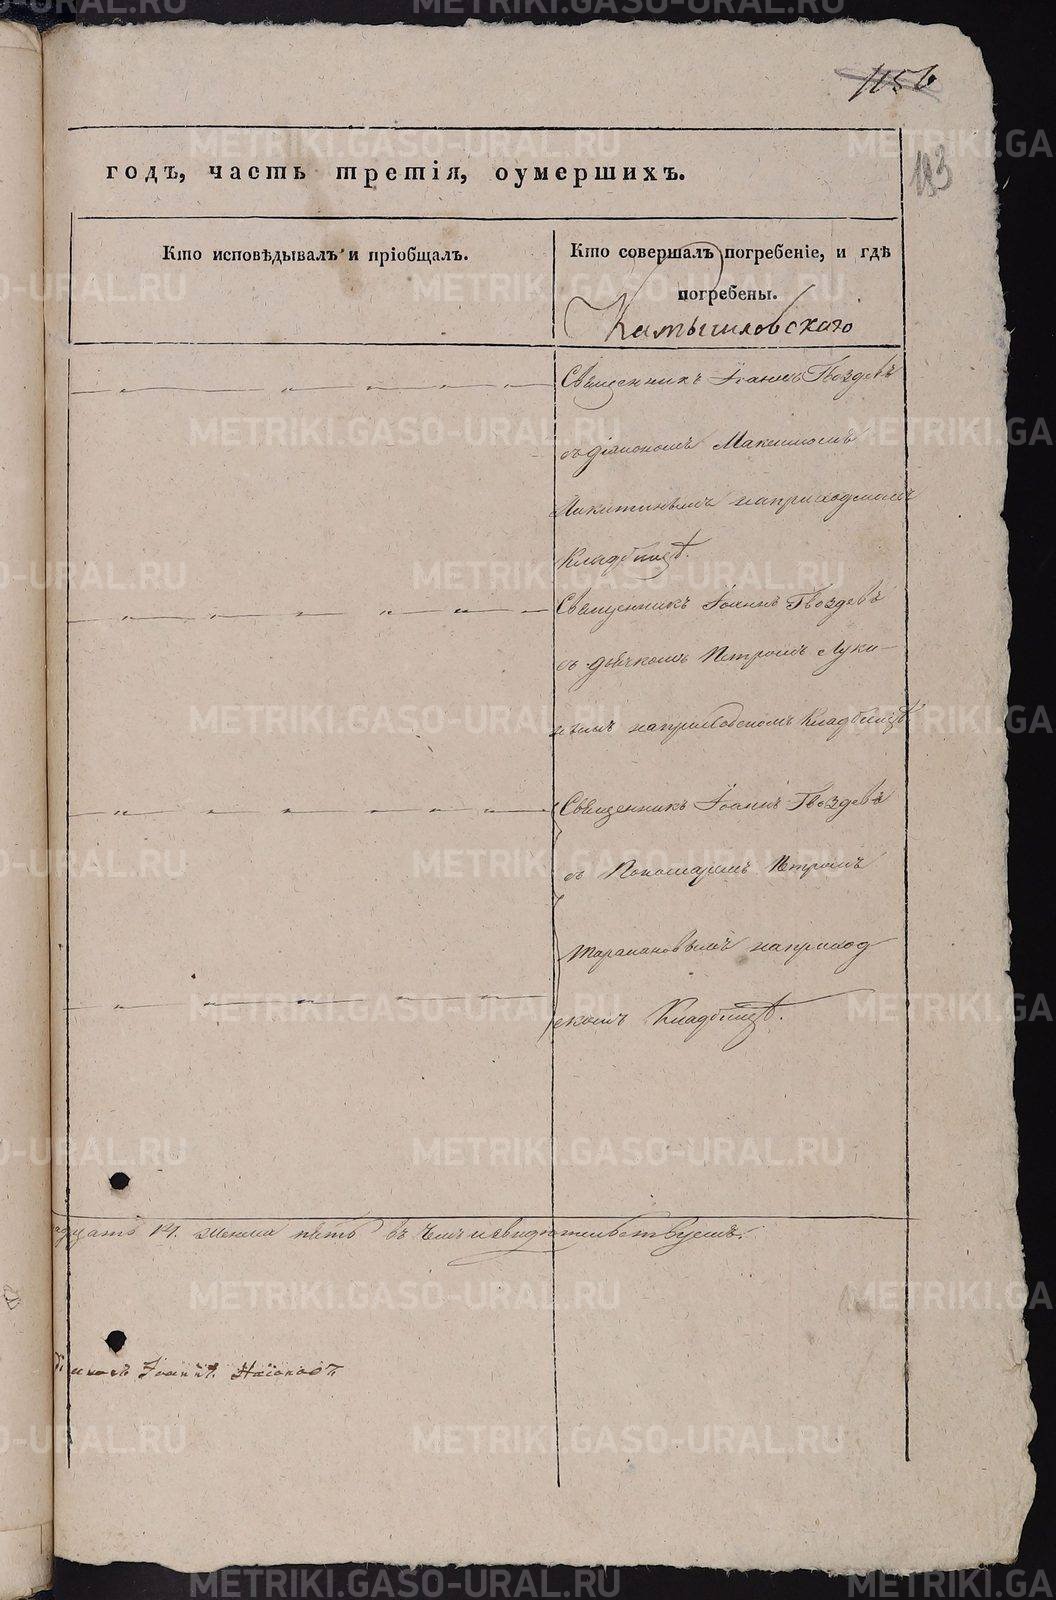 1156
годъ, часть третія, оумершихъ.
193
Кто исповѣдывалъ и пріобщалъ.
Кто совершалъ погребеніе, и гдѣ
погребены.
Камышловскаго
Священникъ Іоаннъ Гвоздевъ
съ діакономъ Максимомъ
Никитинымъ на приходскомъ
Кладбищѣ.
Священникъ Іоаннъ Гвоздевъ
съ дьячкомъ Петромъ Луки-
нымъ на приходскомъ Кладбищѣ
Священникъ Іоаннъ Гвоздевъ
съ Пономаремъ Петромъ
Таракановымъ на приход
скомъ Кладбищѣ.
адцать 14. женска пять въ чемъ и свидѣтельствуемъ.
Іоаннъ
METRIKI.GASO-URAL.RU